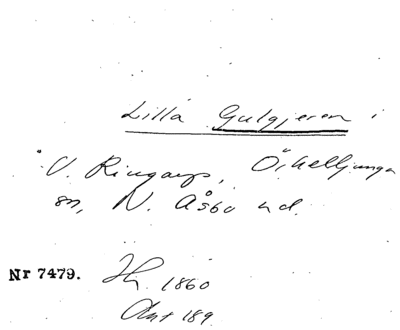 Lilla Gulgjeren i
V. Ringarp, Örkelljunga
sn, N. Åsbo hd.
Nr 7479.
1860
189